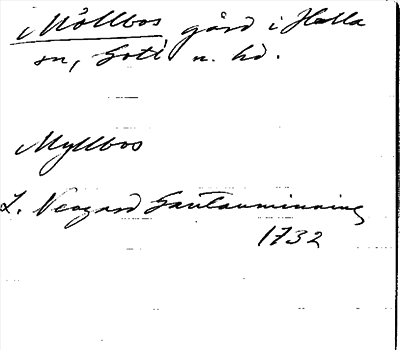 Möllbos, gård i Halla
sn, Gotl n. hd.
Myllbos
L. Neogard Gautauminning
1732